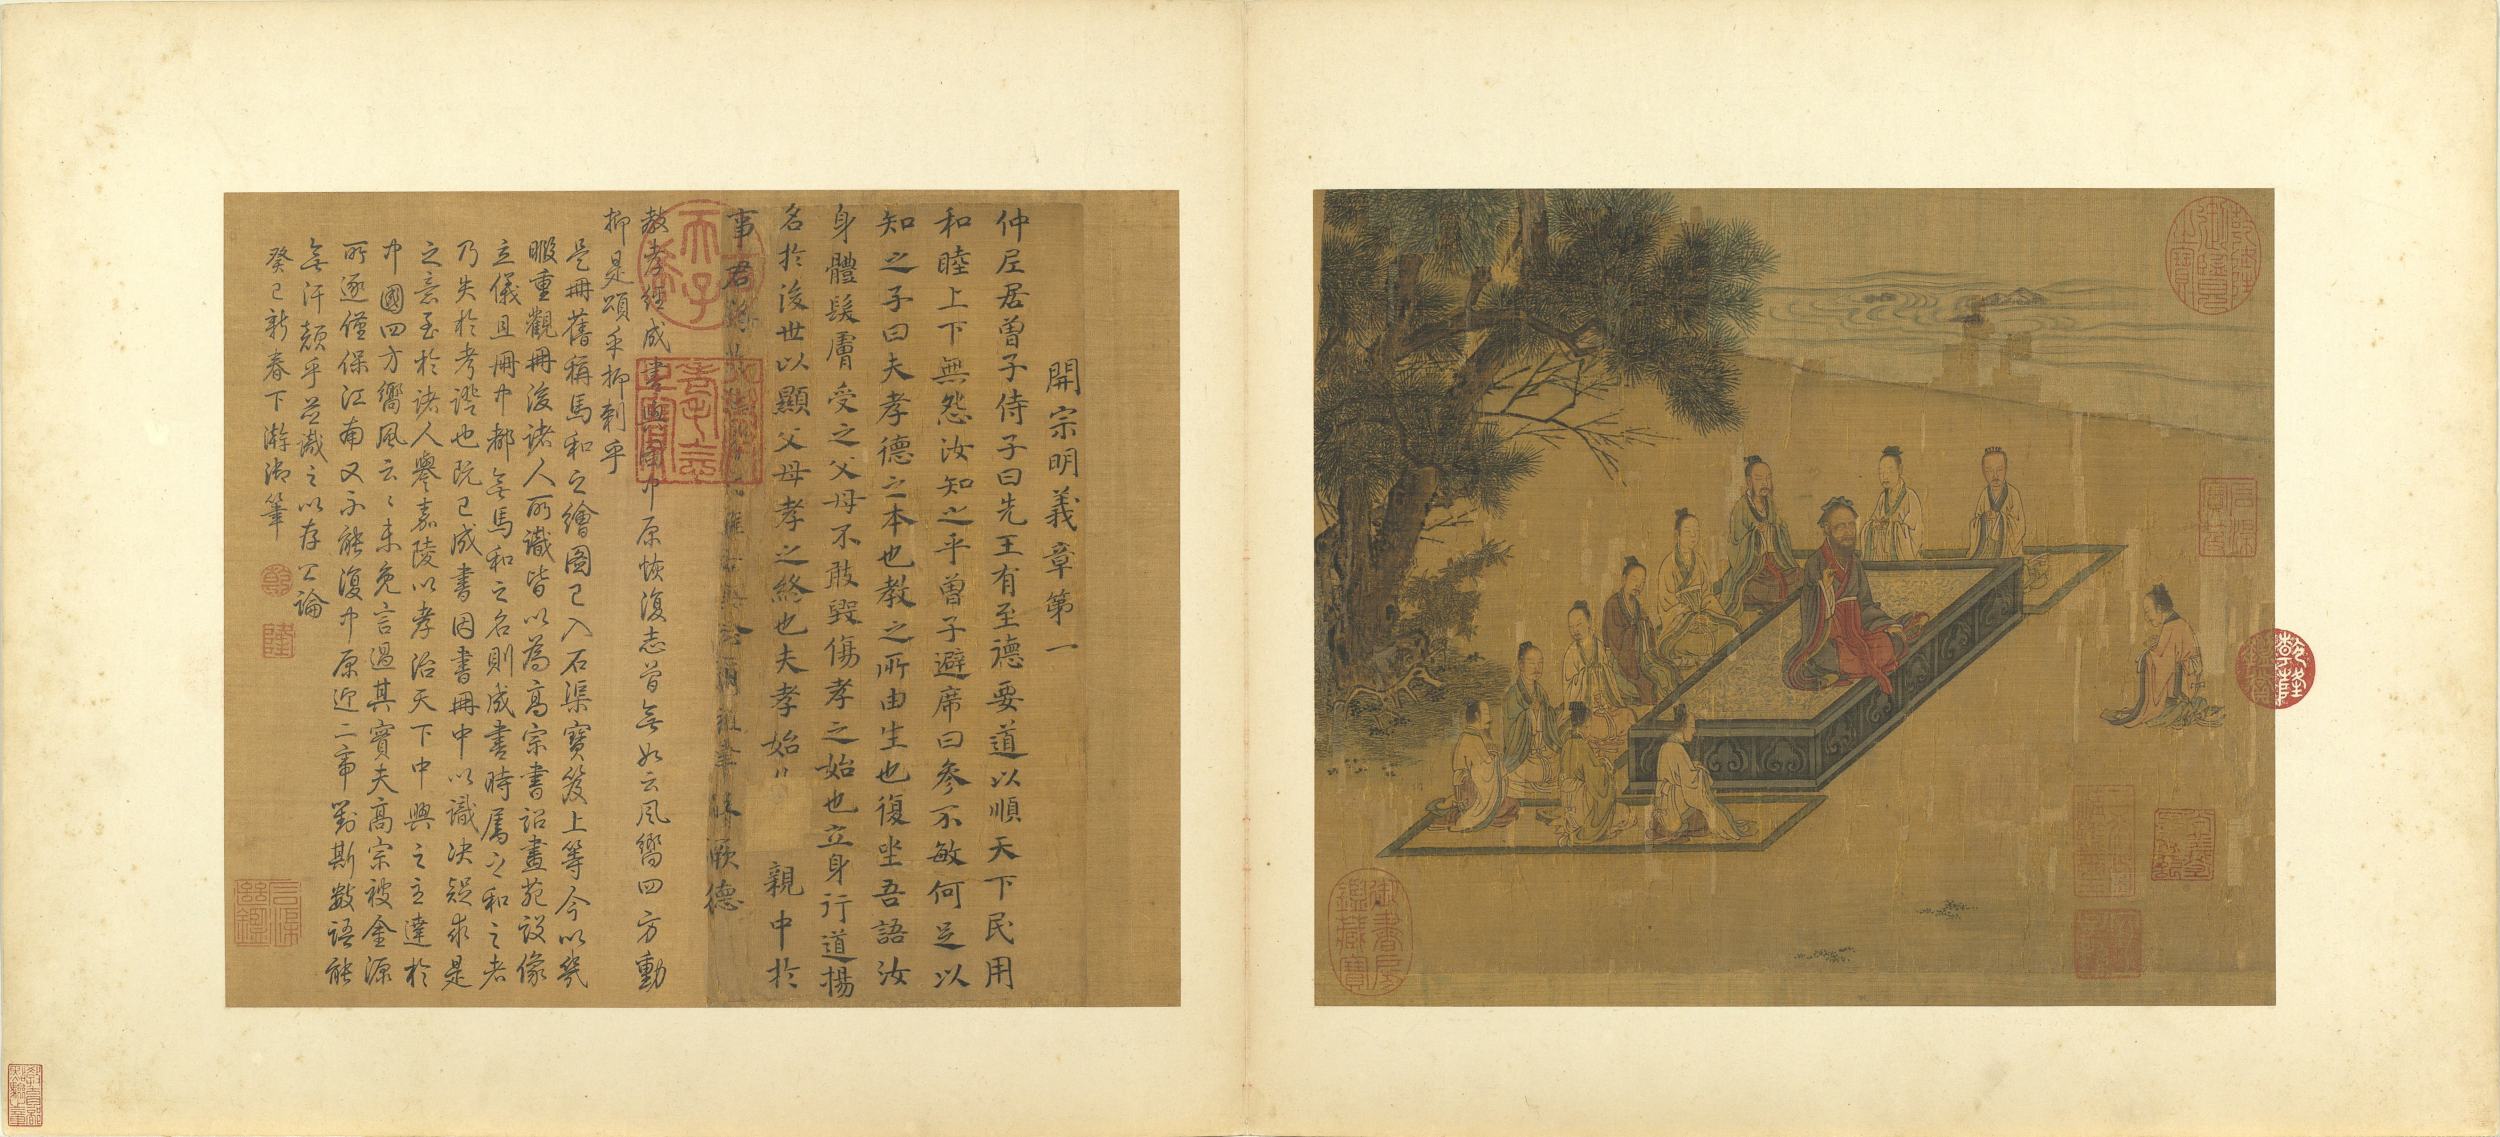 開宗明義章第一
仲尼居曾子侍子曰先王有至德要道以順天下民用
和睦上下無怨汝知之乎曾子避席曰參不敏何足以
知之子曰夫孝德之本也教之所由生也復坐吾語汝
身體髮膚受之父母不敢毀傷孝之始也立身行道揚
名於後世以顯父母孝之終也夫孝始 親中於
事君終 厥德
教孝經成書與圖中原恢復志曾無如云風嚮四方動
抑是頌乎抑刺乎
是冊舊稱馬和之繪圖已入石渠寶笈上等今以幾
暇重觀冊後諸人所識皆以為高宗書詔畫苑設像
立儀且冊中都無馬和之名則成書時屬之和之者
乃失於考證也既已成書因書冊中以識決疑求是
之意至於諸人譽嘉陵以孝治天下中興之主達於
中國四方嚮風云云未免言過其實夫高宗被金源
所逐僅保江南又不能復中原迎二帝對斯數語能
無汗顏乎並識之以存公論
癸巳新春下澣御筆
乾隆
御覽
之寶
乾隆
鑑賞
石渠
寶笈
御書房
鑑藏寶
天子
古稀
壽
隆